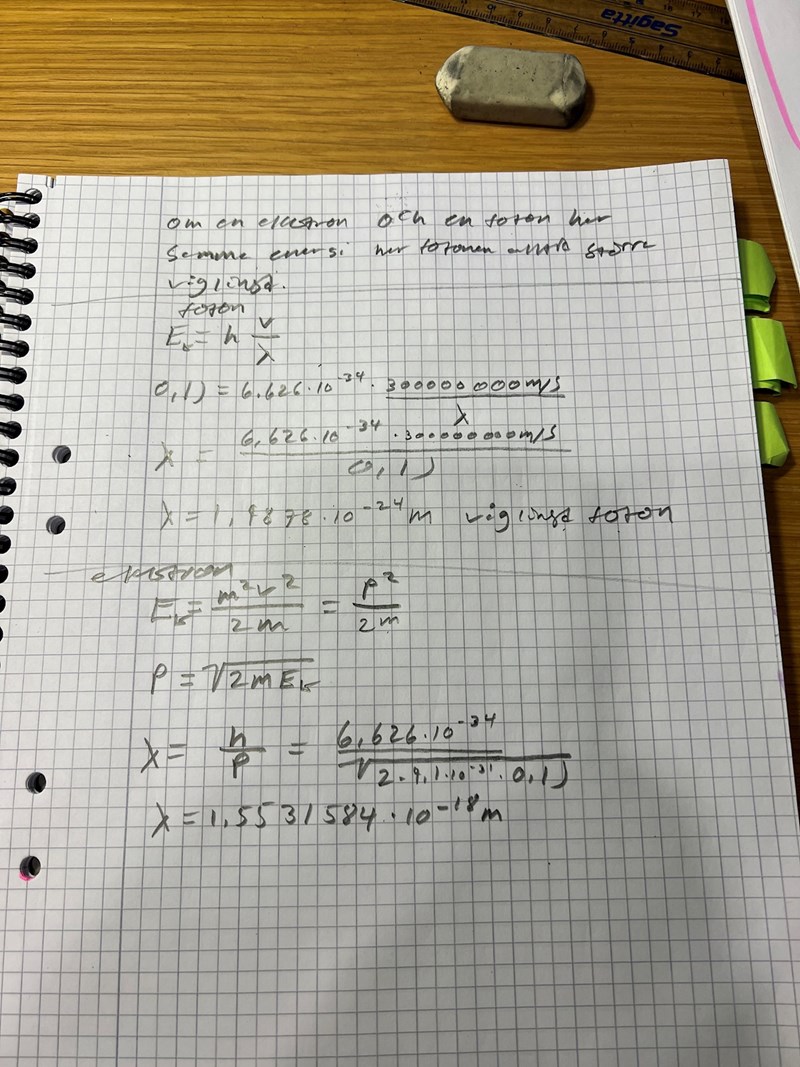 Sagitta
om en elektron och en foton har
samma energi har fotonen alltid större
våglängd.
foton
E_k = h v/λ
0,1J = 6.626·10^-34 · 300000000m/s / λ
λ = 6,626·10^-34 · 300000000m/s / 0,1J
λ = 1,9878·10^-24 m våglängd foton
elektron
E_k = m²v²/2m = p²/2m
P = √2mE_k
λ = h/p = 6,626·10^-34 / √2·9,1·10^-31·0,1J
λ = 1,5531584·10^-18 m